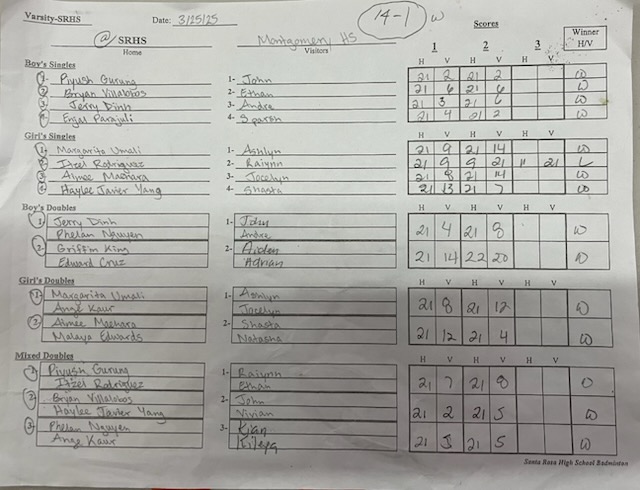 Varsity-SRHS Date: 3/25/25 14-1 W Scores
@ SRHS Montgomery HS 1 2 3 Winner
Home Visitors H V H V H V H/V
Boy's Singles
1- Piyush Gurung 1- John 21 2 21 2 W
2- Bryan Villalobos 2- Ethan 21 6 21 6 W
3- Jerry Dinh 3- Andre 21 3 21 6 W
4- Enjal Parajuli 4- Sparsh 21 4 21 2 W
Girl's Singles H V H V H V
1- Margarita Umali 1- Ashlyn 21 9 21 14 W
2- Itzel Rodriguez 2- Raiynn 21 9 9 21 11 21 L
3- Aimee Maehara 3- Jocelyn 21 8 21 14 W
4- Haylee Javier Yang 4- Shasta 21 13 21 7 W
Boy's Doubles H V H V H V
1- Jerry Dinh 1- John 21 4 21 8 W
Phelan Nguyen Andre
2- Griffin King 2- Aiden 21 14 22 20 W
Edward Cruz Adrian
Girl's Doubles H V H V H V
1- Margarita Umali 1- Ashlyn 21 8 21 12 W
Ange Kaur Jocelyn
2- Aimee Maehara 2- Shasta 21 12 21 4 W
Malaya Edwards Natasha
Mixed Doubles H V H V H V
1- Piyush Gurung 1- Raiynn 21 7 21 8 W
Itzel Rodriguez Ethan
2- Bryan Villalobos 2- John 21 2 21 5 W
Haylee Javier Yang Vivian
3- Phelan Nguyen 3- Kian 21 5 21 5 W
Ange Kaur
Santa Rosa High School Badminton